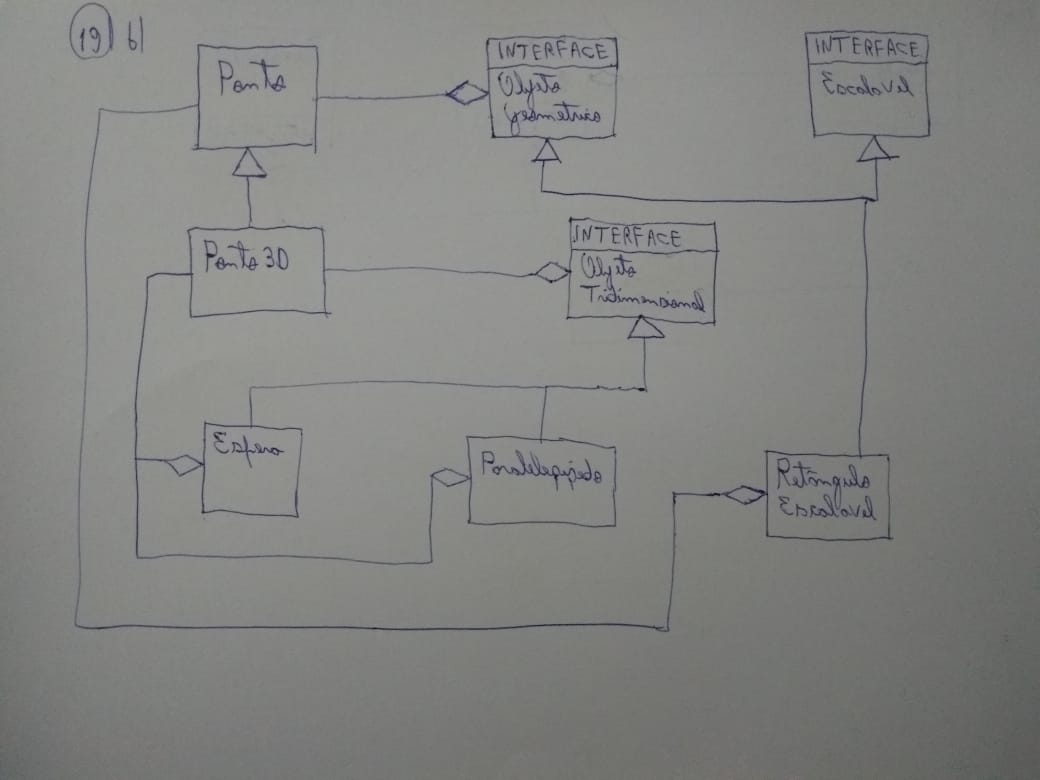 19) b)
Ponto
INTERFACE
Objeto
Geometrico
INTERFACE
Escalavel
Ponto 3D
INTERFACE
Objeto
Tridimensional
Esfera
Paralelepipedo
Retângulo
Escalavel